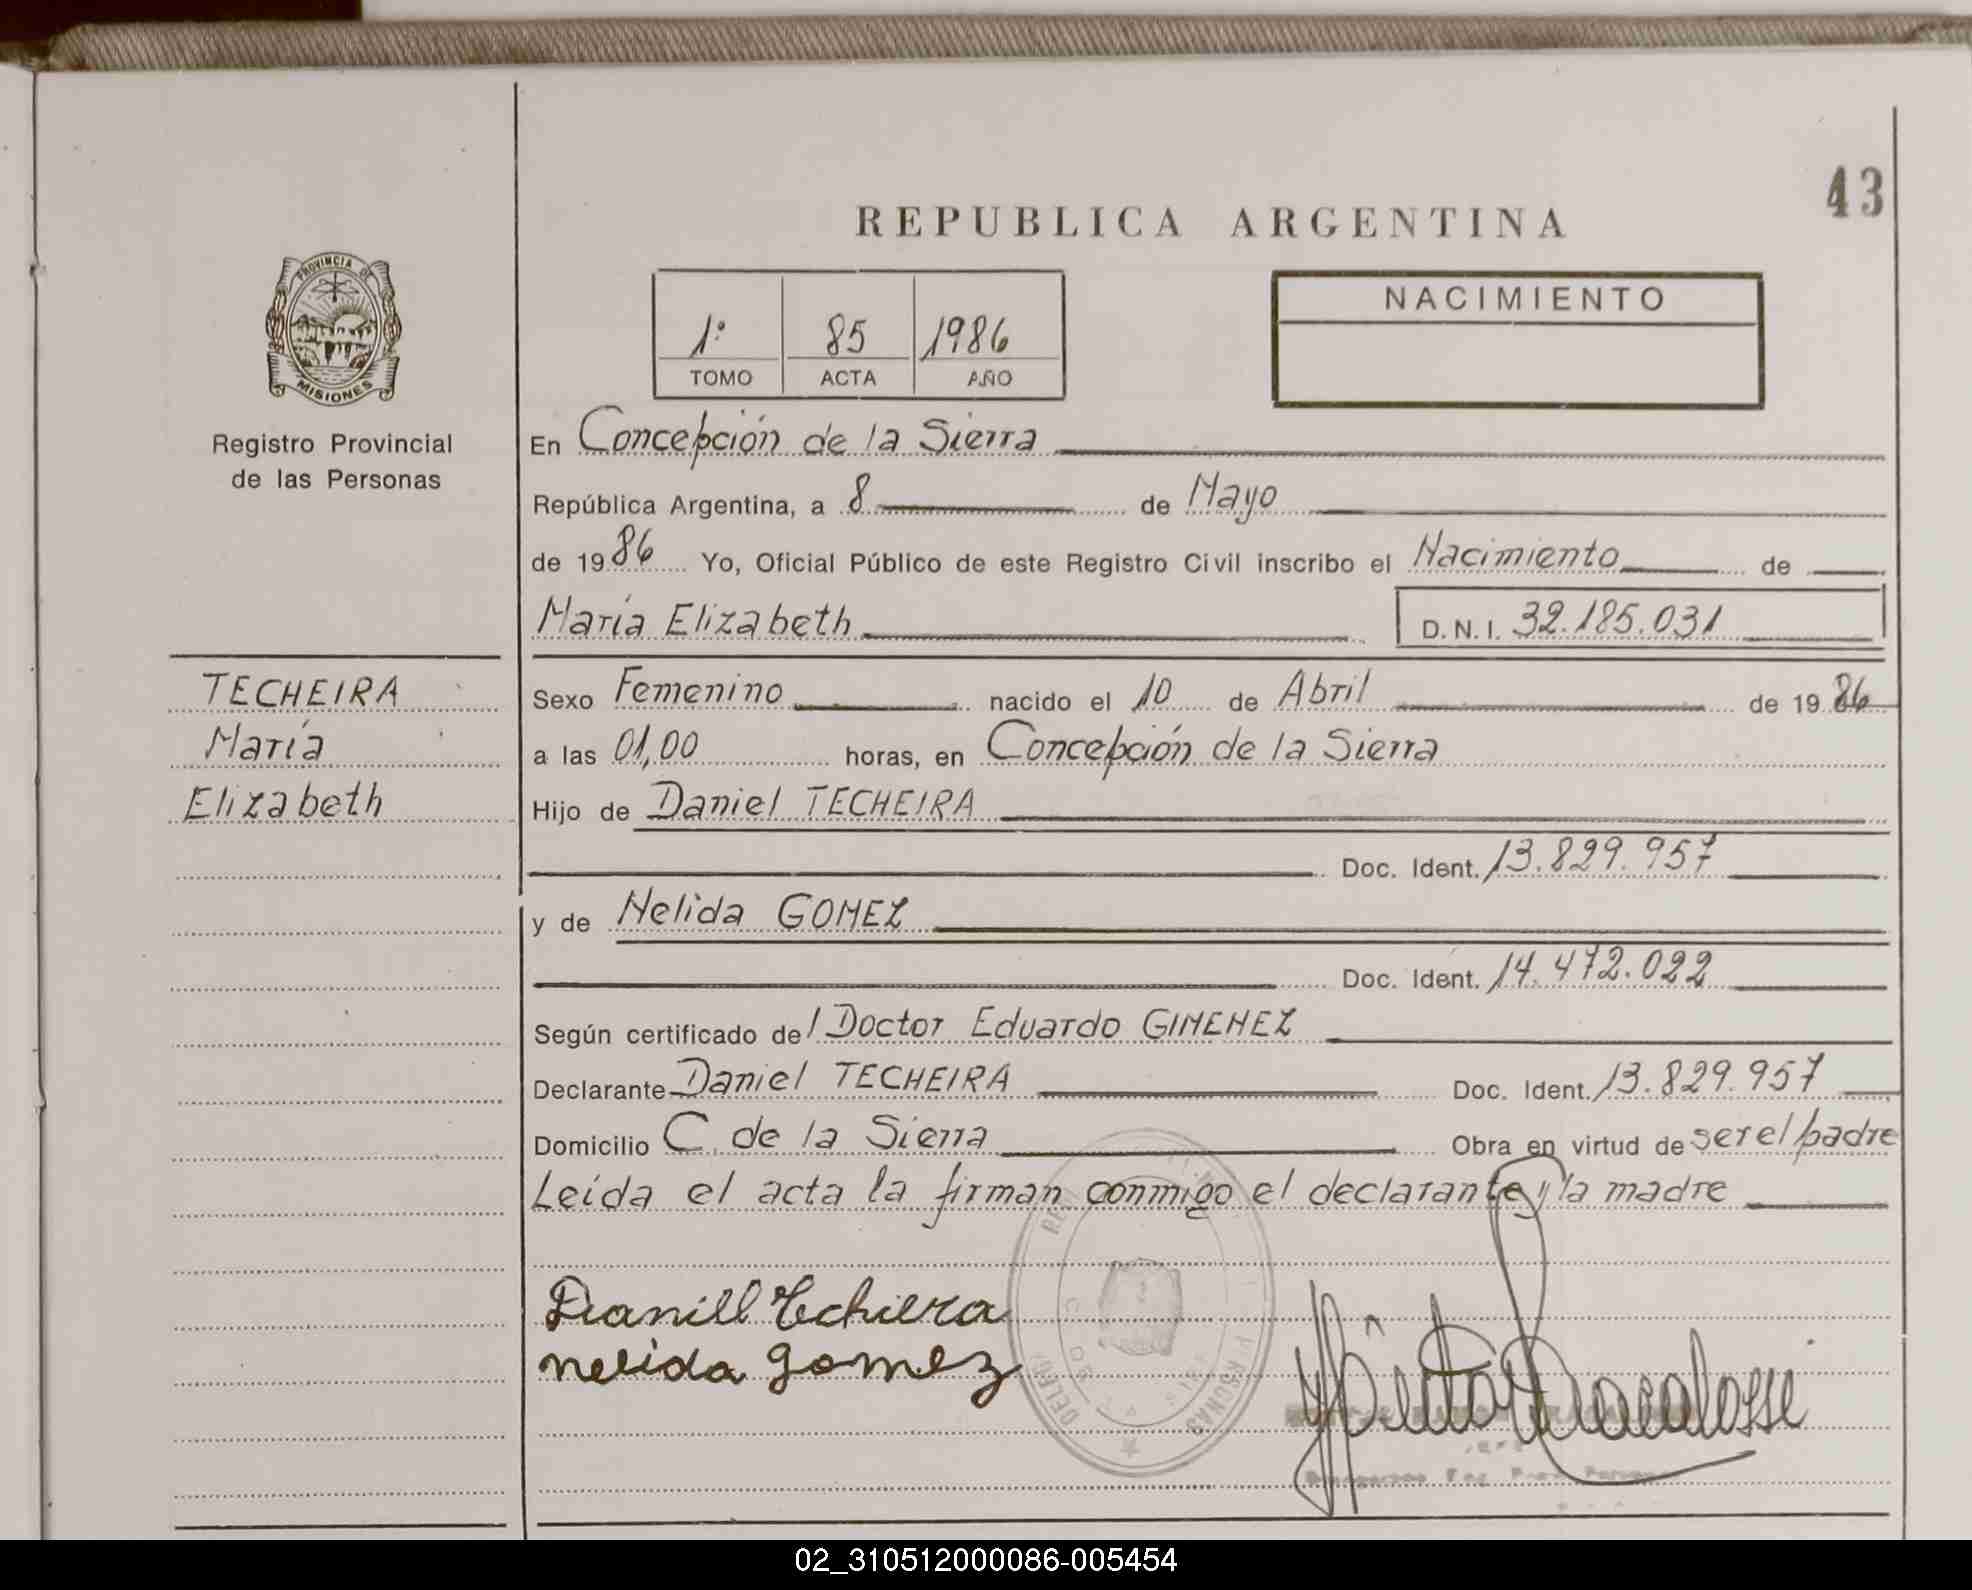 43
REPUBLICA ARGENTINA
PROVINCIA DE
MISIONES
Registro Provincial
de las Personas
1º 85 1986
TOMO ACTA AÑO
NACIMIENTO
En Concepción de la Sierra
República Argentina, a 8 de Mayo
de 1986 Yo, Oficial Público de este Registro Civil inscribo el Nacimiento de
María Elizabeth D.N.I. 32.185.031
TECHEIRA
María
Elizabeth
Sexo Femenino nacido el 10 de Abril de 1986
a las 01,00 horas, en Concepción de la Sierra
Hijo de Daniel TECHEIRA
Doc. Ident. 13.829.957
y de Nelida GOMEZ
Doc. Ident. 14.472.022
Según certificado del Doctor Eduardo GIMENEZ
Declarante Daniel TECHEIRA Doc. Ident. 13.829.957
Domicilio C. de la Sierra Obra en virtud de ser el padre
Leída el acta la firman conmigo el declarante y la madre
Daniell Techiera
nelida gomez
02_310512000086-005454